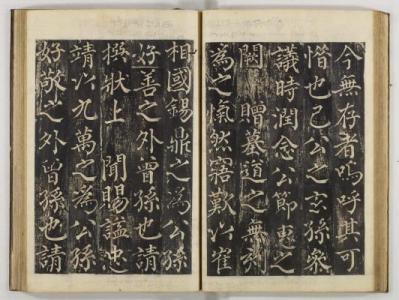 今無存者嗚呼其可
惜也已公之玄孫叅
議時潤念公節惠之
闕贈墓道之無刻
為之愾然竊歎以崔
相國錫鼎之為公孫
好善之外曾孫也請
撰狀上 聞賜謚忠
靖以九萬之為公孫
好敬之外曾孫也請